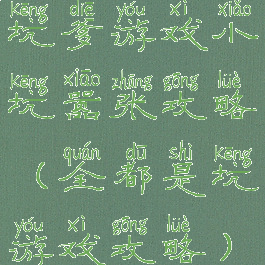 kēng diē yóu xì xiǎo
坑爹游戏小
kēng xiāo zhāng gōng lüè
坑嚣张攻略
quán dū shì kēng
（全都是坑
yóu xì gōng lüè
游戏攻略）